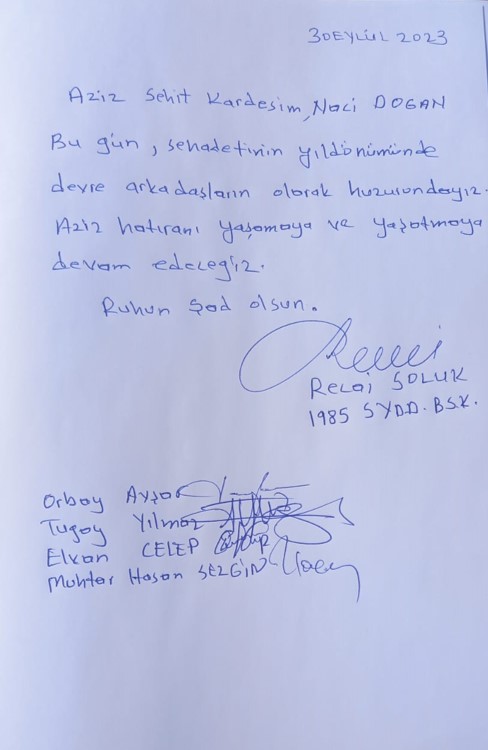 30 EYLÜL 2023
Aziz Şehit Kardeşim, Naci DOĞAN
Bu gün, şehadetinin yıldönümünde
devre arkadaşların olarak huzurundayız.
Aziz hatıranı yaşamaya ve yaşatmaya
devam edeceğiz.
Ruhun şad olsun.
Recai SOLUK
1985 SYDD. BŞK.
Orbay Ayşar
Tugay Yılmaz
Elvan CELEP
Muhtar Hasan SEZGİN